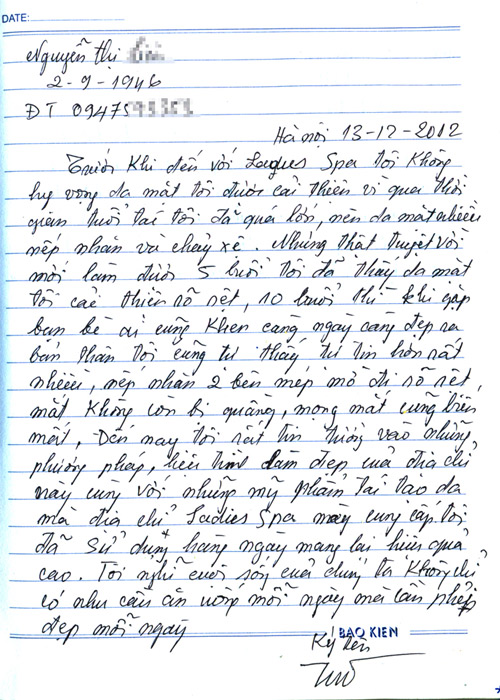 DATE:
Nguyễn Thị
2-9-1946
ĐT 09475
Hà nội 13-12-2012
Trước khi đến với Ladies Spa tôi không
hy vọng da mặt tôi được cải thiện vì qua thời
gian tuổi tác tôi đã quá lớn, nên da mặt nhiều
nếp nhăn và chảy xệ. Nhưng thật tuyệt vời
mới làm được 5 buổi tôi đã thấy da mặt
tôi cải thiện rõ rệt, 10 buổi thì khi gặp
bạn bè ai cũng khen càng ngày càng đẹp ra
bản thân tôi cũng tự thấy tự tin hơn rất
nhiều, nếp nhăn 2 bên mép mờ đi rõ rệt,
mắt không còn bị quầng, mọng mắt cũng biến
mất, Đến nay tôi rất tin tưởng vào những
phương pháp, liệu trình làm đẹp của địa chỉ
này cùng với những mỹ phẩm tái tạo da
mà địa chỉ Ladies Spa này cung cấp tôi
đã sử dụng hàng ngày mang lại hiệu quả
cao. Tôi nghĩ cuộc sống của chúng ta không chỉ
có nhu cầu ăn uống mỗi ngày mà cần phải
đẹp mỗi ngày
BAO KIEN
Ký tên